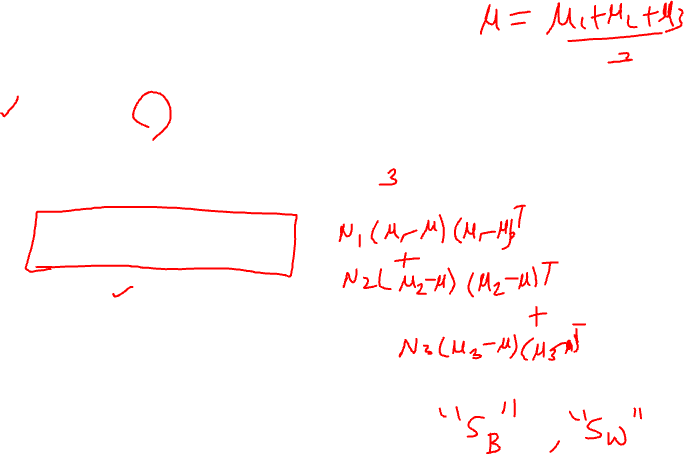 μ = μ1+μ2+μ3
3
3
N1(μ1-μ)(μ1-μ)T
+
N2(μ2-μ)(μ2-μ)T
+
N3(μ3-μ)(μ3-μ)T
"SB" , "SW"